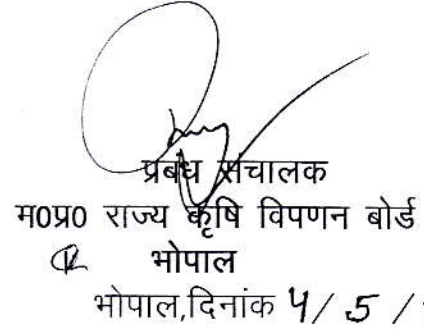 प्रबंध संचालक
म0प्र0 राज्य कृषि विपणन बोर्ड
भोपाल
भोपाल,दिनांक 4/ 5 /